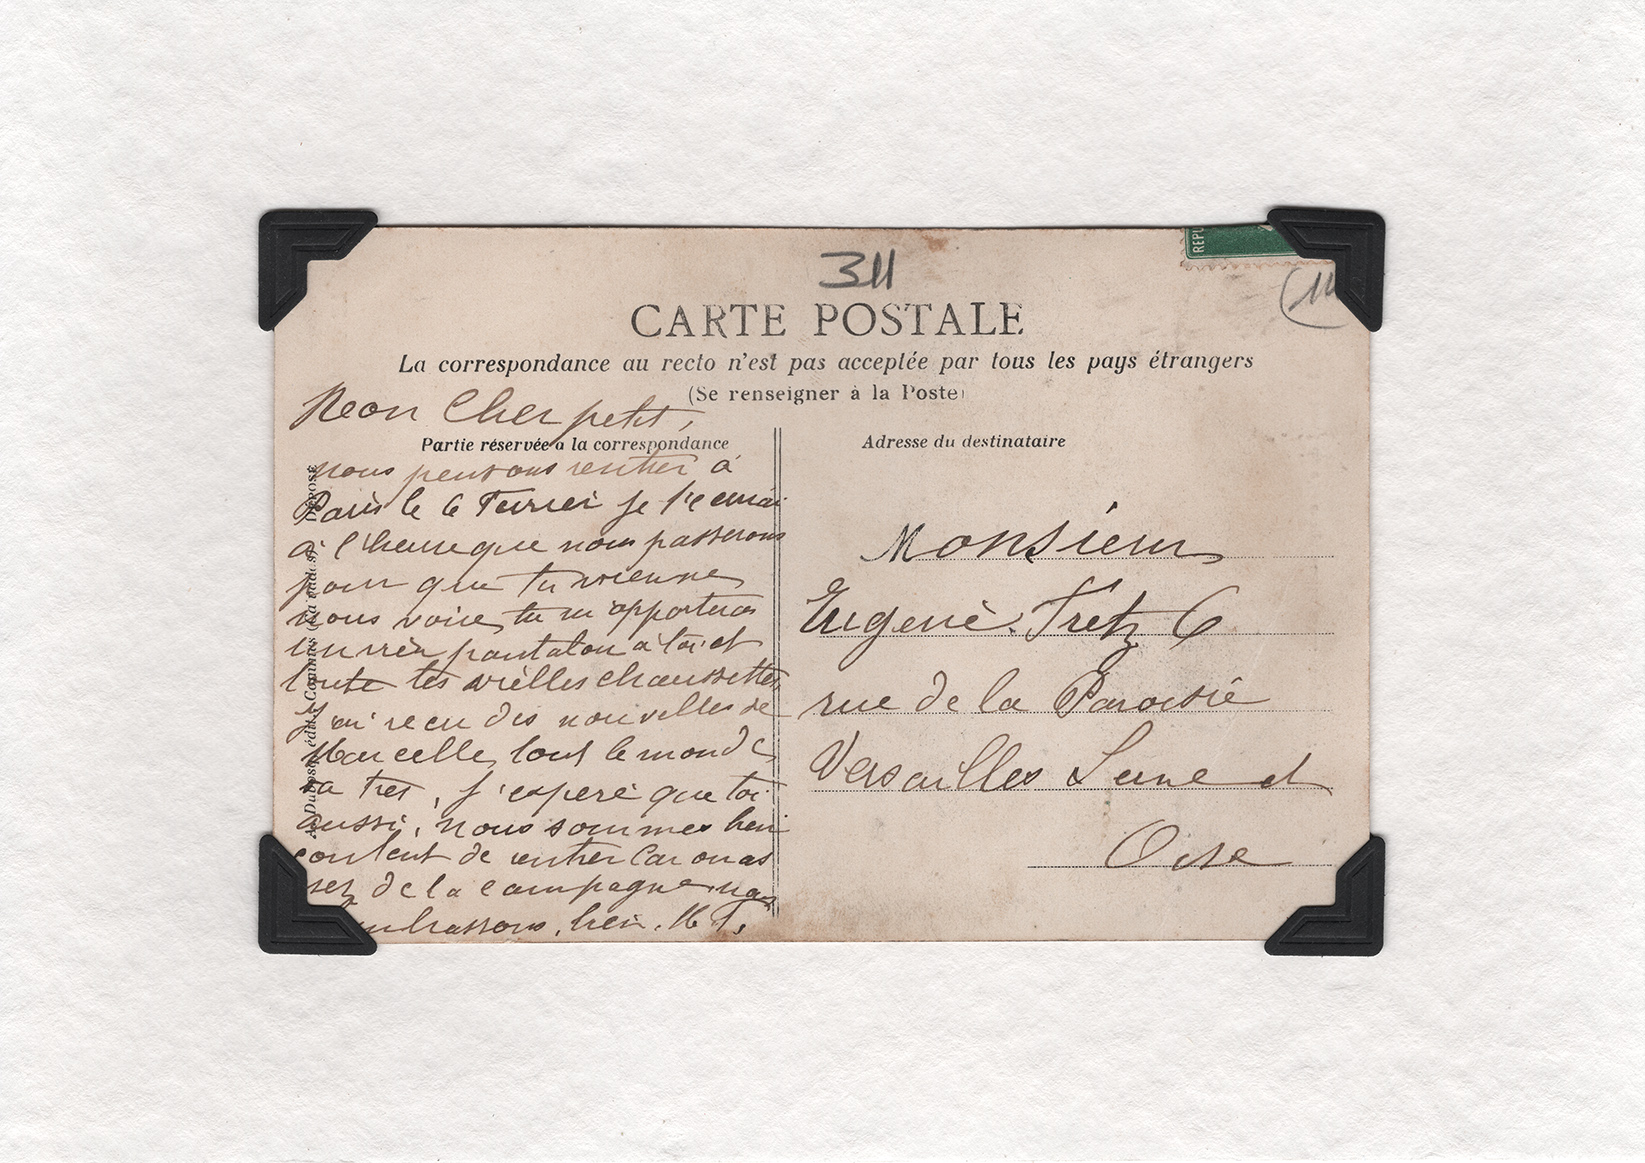 REPU
311
CARTE POSTALE
La correspondance au recto n'est pas acceptée par tous les pays étrangers
(Se renseigner à la Poste)
Mon Cher petit,
Partie réservée à la correspondance
nous pensons rentrer à
Paris le 6 Fevrier je t'
à l'heure que nous passerons
pour que tu vienne
nous voir, tu m'apporteras
un pantalon à toi et
toute tes vielles chaussettes
J'ai recu des nouvelles de
Marcelle, tout le monde
va tres, j'espere que toi
aussi, nous sommes bien
content de rentrer Car on as
sez de la campagne nous
embrassons, bien. M T,
Adresse du destinataire
Monsieur
Eugene Tretz 6
rue de la Paroisse
Versailles Seine et
Oise